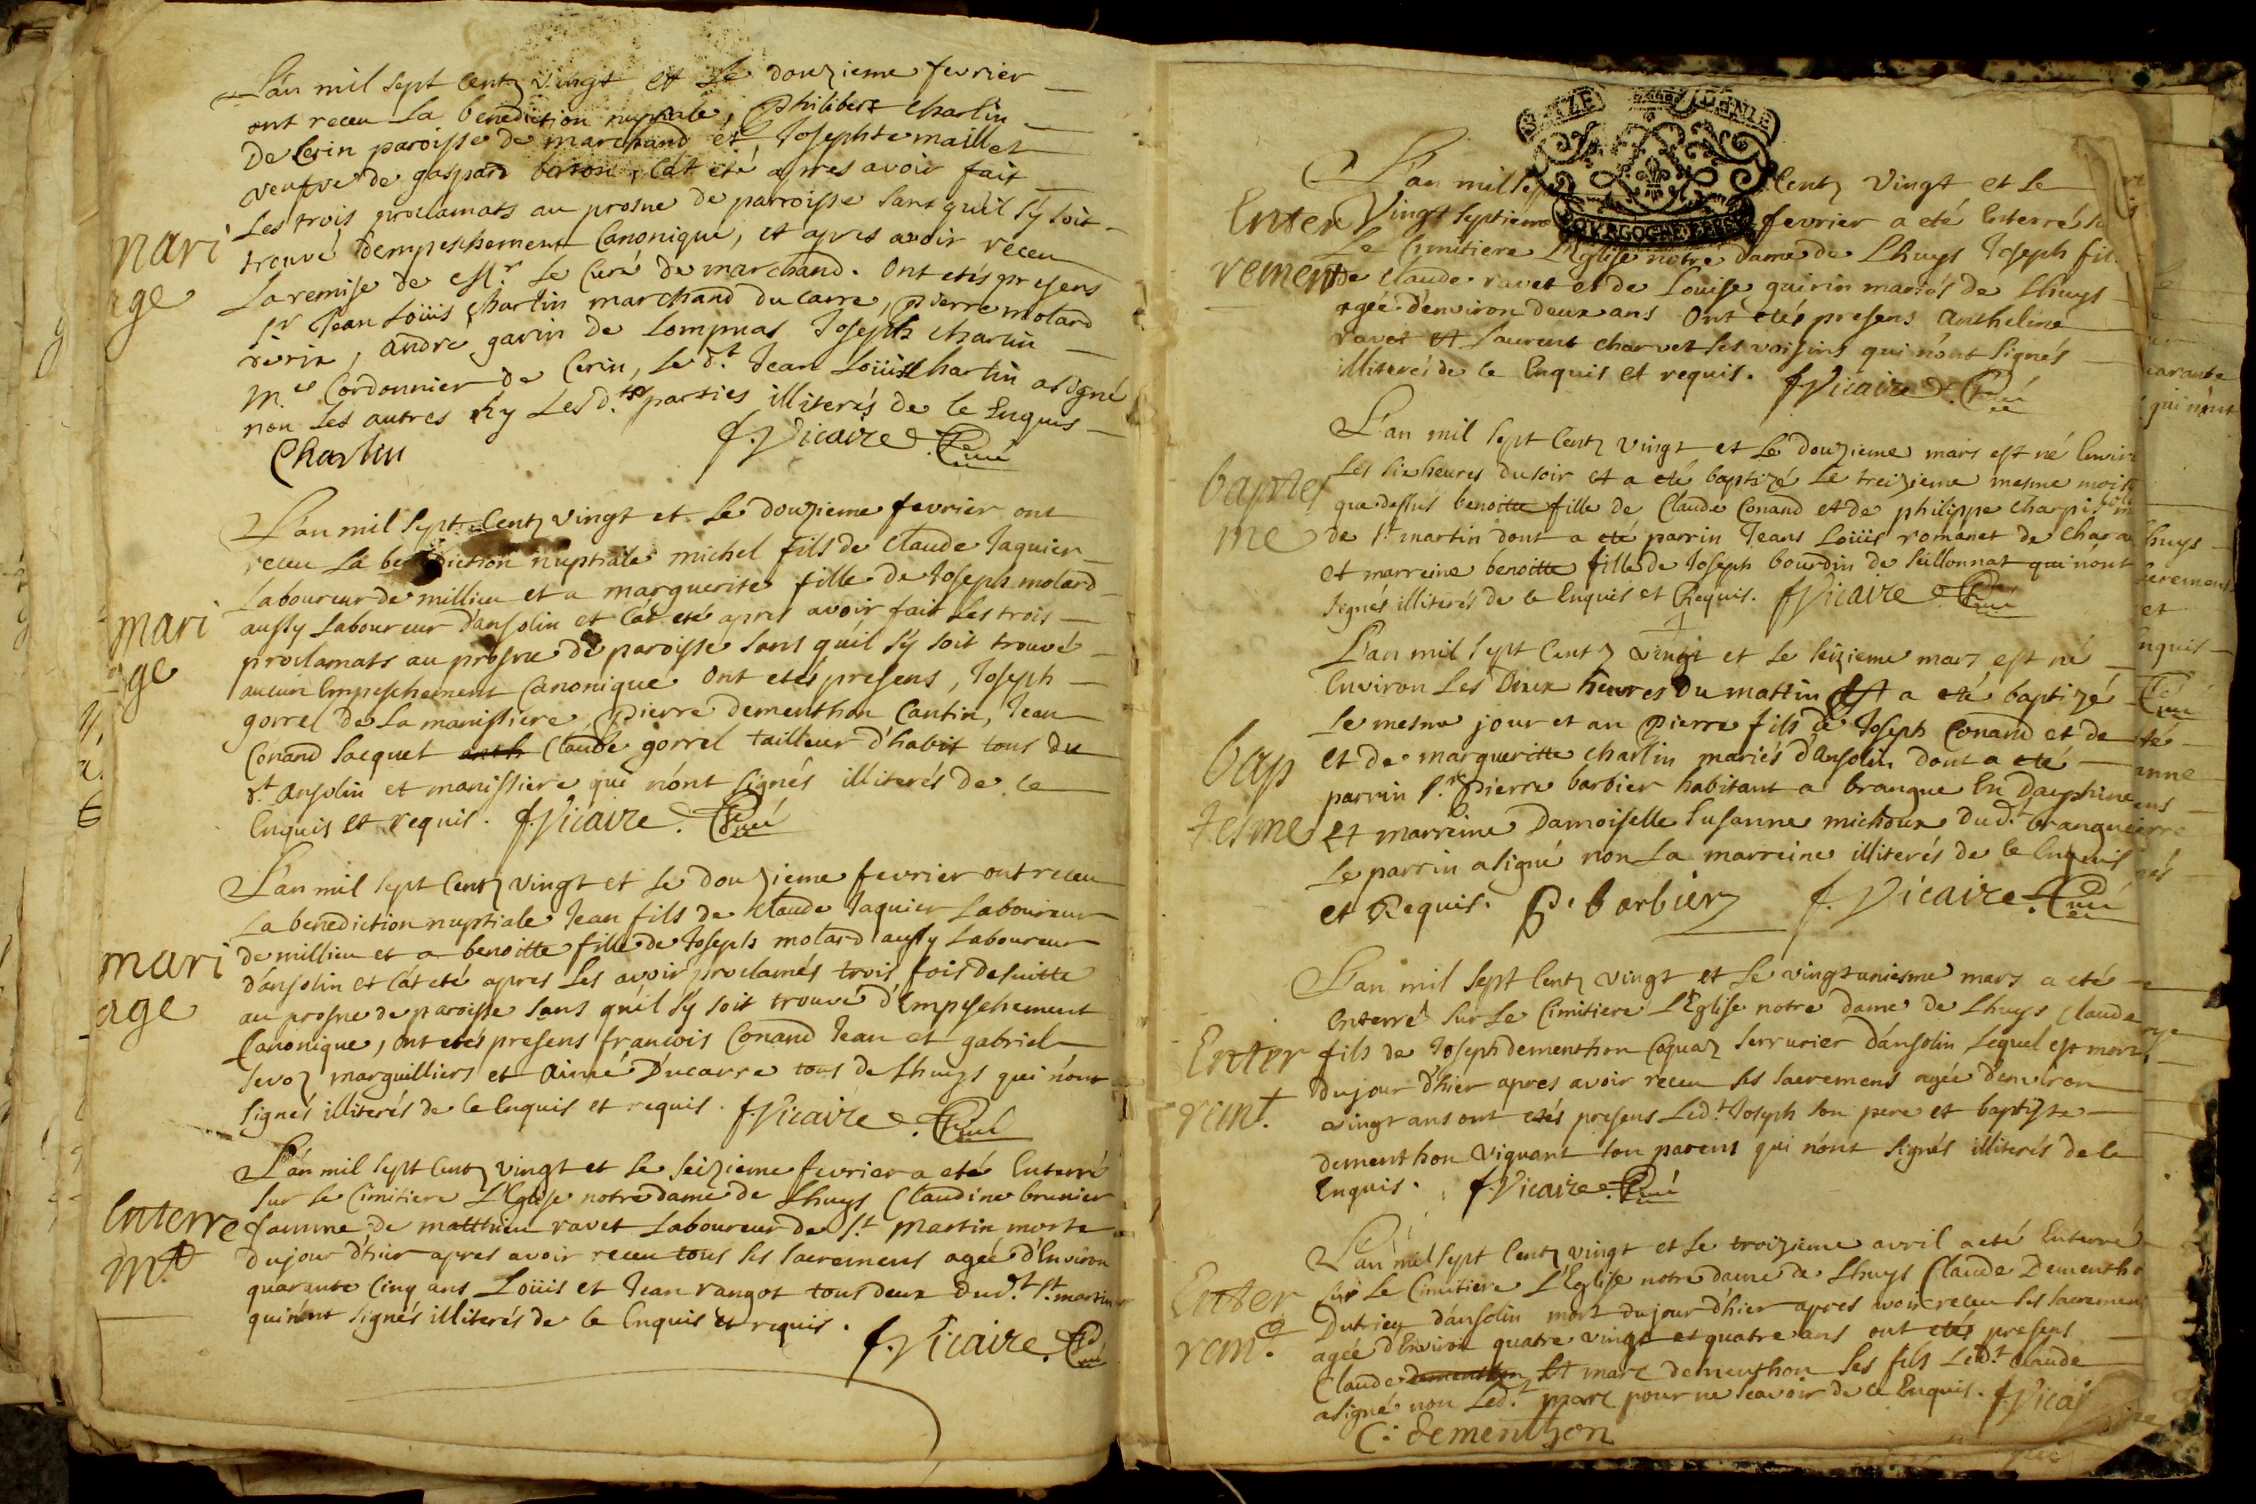 mari
age
L'an mil sept Centz vingt et le douzieme fevrier
ont receu La benediction nuptiale, Philibert Charlin
De Cerin paroisse de marchand et Josephte maillet
veufve de gaspard borron, C'at eté apres avoir fait
Les trois proclamats au prosne de parroisse sans qu'il s'y soit
trouvé d'empeschement Canonique, et apres avoir receu
La remise de Mr. Le Curé de marchand. Ont etés presens
sr Jean Loüis Charlin marchand ducarre, pierre molard
andré gavin de Lompnas Joseph Charlin
M.e Cordonnier de Cerin, Le d.t Jean Loüis Charlin a signé
non Les autres ny Les d.tes parties illiterés de ce Enquis
Charlin f. Vicaire Curé
mari
age
L'an mil sept Centz vingt et Le douzieme fevrier ont
receu La benediction nuptiale michel fils de Claude Jaquier
Laboureur de millieu et a marguerite fille de Joseph molard
aussy Laboureur d'ansolin et C'at eté apres avoir fait Les trois
proclamats au prosne de paroisse sans qu'il s'y soit trouvé
aucun Empeschement Canonique Ont etés presens, Joseph
gorrel de La manissiere, Pierre dementhon Cantin, Jean
Conand Jacquet Claude gorrel tailleur d'habit tous du
d.t ansolin et manissiere qui n'ont signés illiterés de ce
Enquis et requis. f. Vicaire Curé
mari
age
L'an mil sept Centz vingt et Le douzieme fevrier ont receu
La benediction nuptiale Jean fils de Claude Jaquier Laboureur
de millieu et a benoitte fille de Joseph molard aussy Laboureur
d'ansolin et C'at eté apres Les avoir proclamés trois fois de suitte
au prosne de paroisse sans qu'il s'y soit trouvé d'Empeschement
Canonique, Ont etés presens francois Conand Jean et gabriel
sevoz marguilliers et Aimé Ducarre tous de Lhuys qui n'ont
signés illiterés de ce Enquis et requis. f. Vicaire Curé
Enterre
m.t
L'an mil sept Centz vingt et Le seizieme fevrier a eté Enterré
sur Le Cimitiere L'Eglise notre dame de Lhuys Claudine brunier
famme de matthieu ravet Laboureur de S.t Martin morte
du jour d'hier apres avoir receu tous ses sacremens agée d'Environ
quarante Cinq ans Loüis et Jean rangot tous deux du d.t S.t martin
qui n'ont signés illiterés de ce Enquis et requis.
f. Vicaire Curé
Enter
rement
L'an mil sept Centz Vingt et Le
Vingt septieme fevrier a eté Enterré
Le Cimitiere L'Eglise notre Dame de Lhuys Joseph fils
de Claude ravet et de Loüise guirin mariés de Lhuys
agée d'environ deux ans Ont etés presens Antheline
ravet et Laurent charvet ses voisins qui n'ont signés
illiterés de ce Enquis et requis. f. Vicaire Curé
baptes
me
L'an mil sept Centz vingt et Le douzieme mars est né Environ
Les six heures du soir et a eté baptizé Le treizieme mesme mois
que dessus benoitte fille de Claude Conand et de philippe
de S.t martin dont a eté parrin Jean Loüis romanet de
et marreine benoitte fille de Joseph bourdin de seillonnat qui n'ont
signés illiterés de ce Enquis et Requis. f. Vicaire Curé
bap
tesme
L'an mil sept Centz vingt et Le seizieme mars est né
Environ Les Dixx heures du mattin Et a eté baptizé
Le mesme jour et an Pierre fils de Joseph Conand et de
et de margueritte Charlin mariés d'Ansolin dont a eté
parrin s.r Pierre barbier habitant a brangue En Dauphine
et marreine Damoiselle Susanne michoux du d.t brangue
Le parrin a signé non La marreine illiterés de ce Enquis
et Requis. P. barbier f. Vicaire Curé
Enter
rem.t
L'an mil sept Centz vingt et Le vingtuniesme mars a eté
Enterré sur Le Cimitiere L'Eglise notre dame de Lhuys Claude
fils de Joseph dementhon Coquaz serrurier d'ansolin Lequel est mort
du jour d'hier apres avoir receu ses sacremens agée d'environ
vingt ans ont etés presens Led.t Joseph son pere et baptiste
dementhon viquant son parent qui n'ont signés illiterés de ce
Enquis. f. Vicaire Curé
Enter
rem.t
L'an mil sept Centz vingt et Le troizieme avril a eté Enterré
sur Le Cimitiere L'Eglise notre dame de Lhuys Claude Dementho
Dutriey d'ansolin mort du jour d'hier apres avoir receu ses sacremens
agée d'Environ quatre vingt et quatre ans ont etés presens
Claude dementhon Et marc dementhon ses fils Led.t Claude
a signé non Led.t marc pour ne scavoir de ce Enquis. f. Vicai
C. dementhon